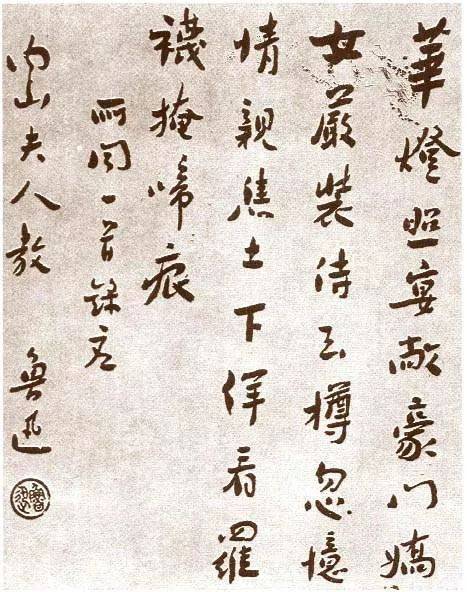 華燈照宴敞豪門嬌
女嚴裝侍玉樽忽憶
情親焦土下佯看羅
襪掩啼痕
所聞一首錄应
内山夫人教
魯迅
魯迅